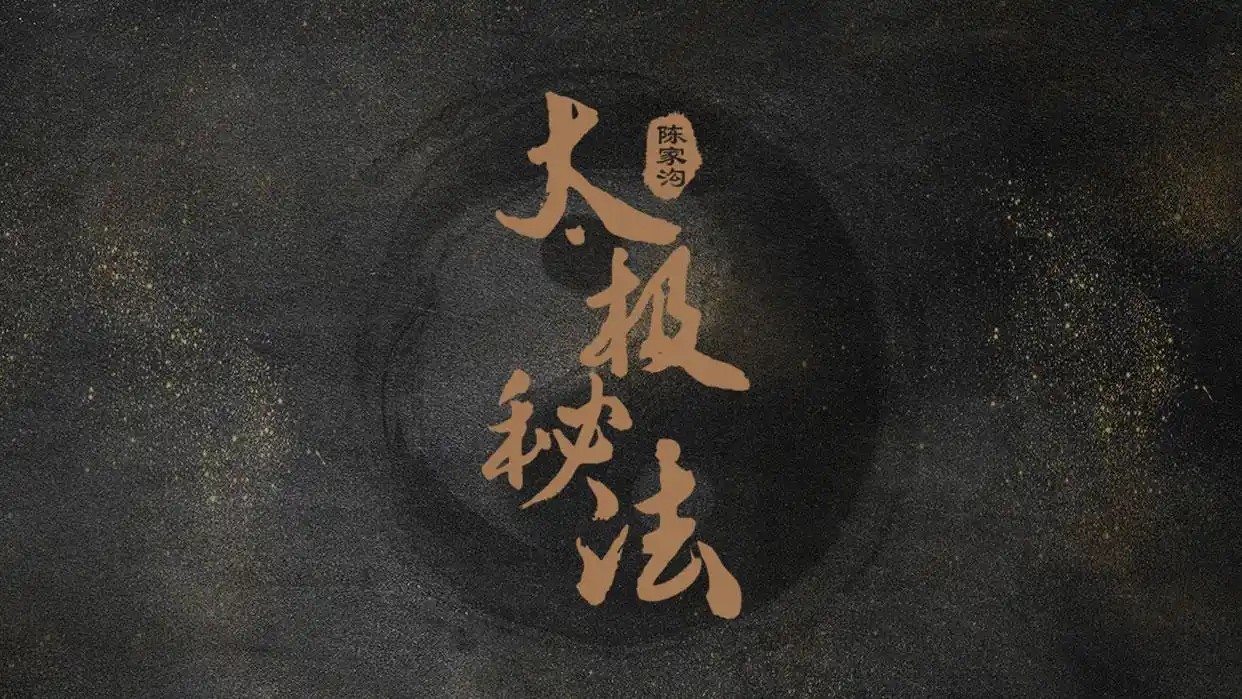 太极秘法
陈家沟